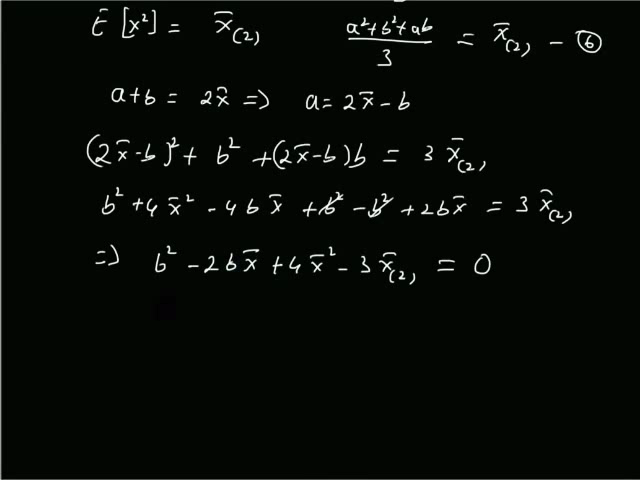 E [x²] = x̄₍₂₎   (a²+b²+ab)/3 = x̄₍₂₎ - ⑥
a+b = 2x̄ => a = 2x̄ - b
(2x̄-b)² + b² + (2x̄-b)b = 3 x̄₍₂₎
b² + 4x̄² - 4bx̄ + b² - b² + 2bx̄ = 3 x̄₍₂₎
=> b² - 2bx̄ + 4x̄² - 3x̄₍₂₎ = 0